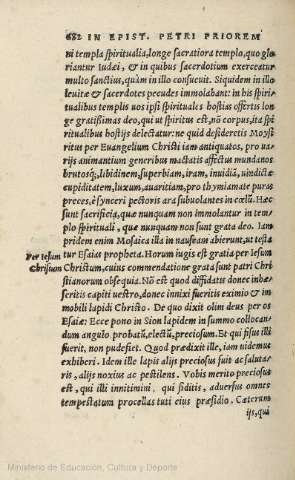 682 IN EPIST. PETRI PRIOREM
ni templa spiritualia, longe sacratiora templo, quo glo
riantur Iudæi, & in quibus sacerdotium exerceatur
multo sanctius, quàm in illo consuevit. Siquidem in illo
levitæ & sacerdotes pecudes immolabant: in his spiri-
tualibus templis vos ipsi spirituales hostias offertis lon
ge gratissimas deo, qui ut spiritus est, nõ corpus, ita spi
ritualibus hostijs delectatur: ne quid desideretis Moysi
ritus per Evangelium Christi iam antiquatos, pro va-
rijs animantium generibus mactatis affectus mundanos
brutosq;, libidinem, superbiam, iram, invidiã, vindictæ
cupiditatem, luxum, avaritiam, pro thymiamate puras
preces, è synceri pectoris ara subvolantes in cœlũ. Hæc
sunt sacrificia, quæ nunquam non immolantur in tem-
plo spirituali, quæ nunquam non sunt grata deo. Iam
pridem enim Mosaica illa in nauseam abierunt, ut testa
tur Esaias propheta. Horum iugis est gratia per Iesum
Per Iesum
Christum
Christum, cuius commendatione grata sunt patri Chri
stianorum obsequia. Nõ est quod diffidatis donec inhæ-
seritis capiti vestro, donec innixi fueritis eximio & im-
mobili lapidi Christo. De quo dixit olim deus per os
Esaiæ: Ecce pono in Sion lapidem in summo collocan-
dum angulo probatũ, electũ, preciosum. Et qui fisus illi
fuerit, non pudefiet. Quod prædixit ille, iam videmus
exhiberi. Idem ille lapis alijs preciosus fuit ac saluta-
ris, alijs noxius ac pestilens. Vobis merito preciosus
est, qui illi innitimini, qui fiditis, adversus omnes
tempestatum procellas tuti eius præsidio. Cæterum
ijs, qui
Ministerio de Educación, Cultura y Deporte